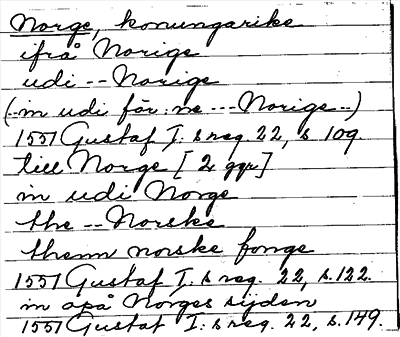 Norge, konungarike
ifrå Norige
udi -- Norige
(..in udi för:ne --- Norige..)
1551 Gustaf I:s reg. 22, s 109.
till Norge [2 ggr]
in udi Norge
the -- Norske
themn norske fonge
1551 Gustaf I:s reg. 22, s. 122.
in opå Norges sijden
1551 Gustaf I:s reg. 22, s. 149.